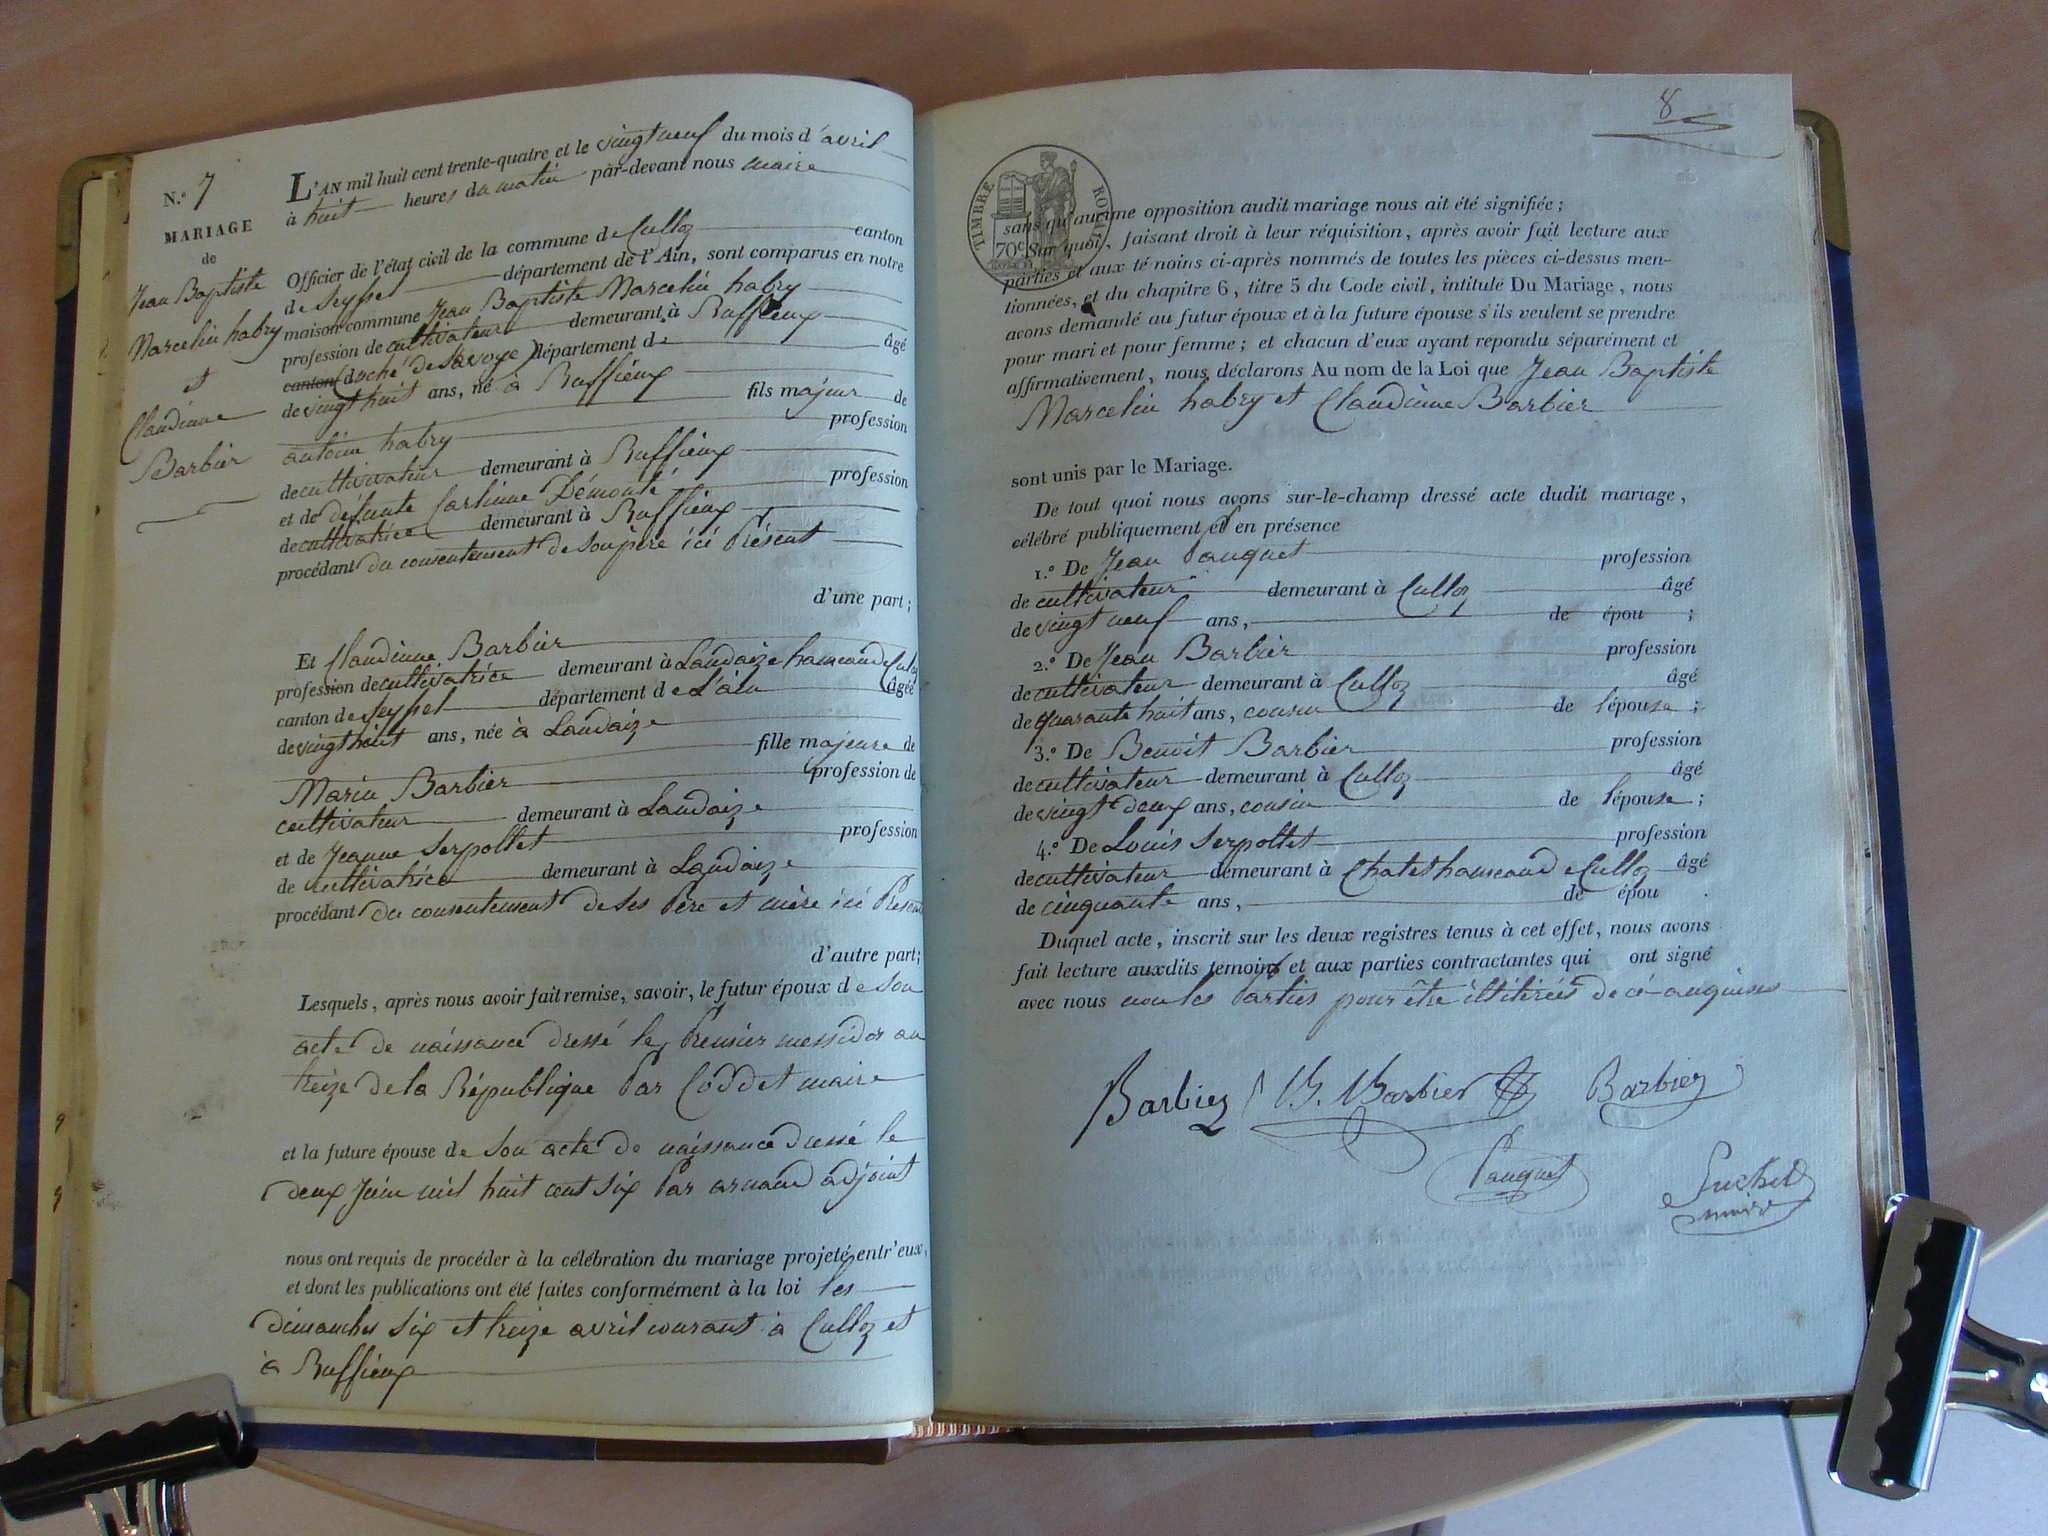 N.º 7
MARIAGE
de
Jean Baptiste
Marcelin habry
et
Claudinne
Barbier
L'AN mil huit cent trente-quatre et le vingt neuf du mois d'avril
à huit heures du matin par-devant nous maire
Officier de l'état civil de la commune de Culloz canton
de Seyssel département de l'Ain, sont comparus en notre
maison commune Jean Baptiste Marcelin habry
profession de cultivateur demeurant à Ruffieux
canton (duché de Savoye) département d âgé
de vingt huit ans, né à Ruffieux
fils majeur de
antoine habry profession
de cultivateur demeurant à Ruffieux
et de défunte Démonté profession
de cultivatrice demeurant à Ruffieux
procédant du consentement de son père ici Présent
d'une part;
Et Claudinne Barbier
profession de cultivatrice demeurant à Landaize hameau de Culoz
canton de Seyssel département de L'ain âgée
de vingt huit ans, née à Landaize
fille majeure de
Marin Barbier profession de
cultivateur demeurant à Landaize
et de Jeanne Serpollet profession
de cultivatrice demeurant à Landaize
procédant du consentement de ses Père et mère ici Présent
d'autre part;
Lesquels, après nous avoir fait remise, savoir, le futur époux de son
acte de naissance dressé le Premier messidor an
treize de la République Par Coddet maire
et la future épouse de son acte de naissance dressé le
deux Juin mil huit cent six Par arnaud adjoint
nous ont requis de procéder à la célébration du mariage projeté entr'eux,
et dont les publications ont été faites conformément à la loi les
dimanches six et treize avril courant à Culloz et
à Ruffieux
8
TIMBRE ROYAL
70c
sans qu'aucune opposition audit mariage nous ait été signifiée;
Sur quoi, faisant droit à leur réquisition, après avoir fait lecture aux
parties et aux témoins ci-après nommés de toutes les pièces ci-dessus men-
tionnées, et du chapitre 6, titre 5 du Code civil, intitulé Du Mariage, nous
avons demandé au futur époux et à la future épouse s'ils veulent se prendre
pour mari et pour femme; et chacun d'eux ayant répondu séparément et
affirmativement, nous déclarons Au nom de la Loi que Jean Baptiste
Marcelin habry et Claudinne Barbier
sont unis par le Mariage.
De tout quoi nous avons sur-le-champ dressé acte dudit mariage,
célébré publiquement et en présence
1.º De Jean Pauquet profession
de cultivateur demeurant à Culloz âgé
de vingt neuf ans, de épou ;
2.º De Jean Barbier profession
de cultivateur demeurant à Culloz âgé
de quarante huit ans, cousin de l'épouse;
3.º De Benoit Barbier profession
de cultivateur demeurant à Culloz âgé
de vingt deux ans, cousin de l'épouse;
4.º De Louis Serpollet profession
de cultivateur demeurant à Chatel hameau de Culloz âgé
de cinquante ans, de épou .
Duquel acte, inscrit sur les deux registres tenus à cet effet, nous avons
fait lecture auxdits témoins et aux parties contractantes qui ont signé
avec nous non les Parties pour être illitérées de ce anquises
Barbier B. Barbier Barbier
Pauquet
Guchet
maire